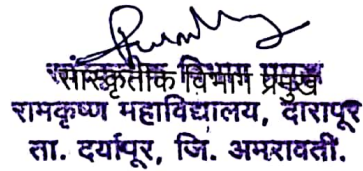 सांस्कृतीक विभाग प्रमुख
रामकृष्ण महाविद्यालय, दारापूर
ता. दर्यापूर, जि. अमरावती.